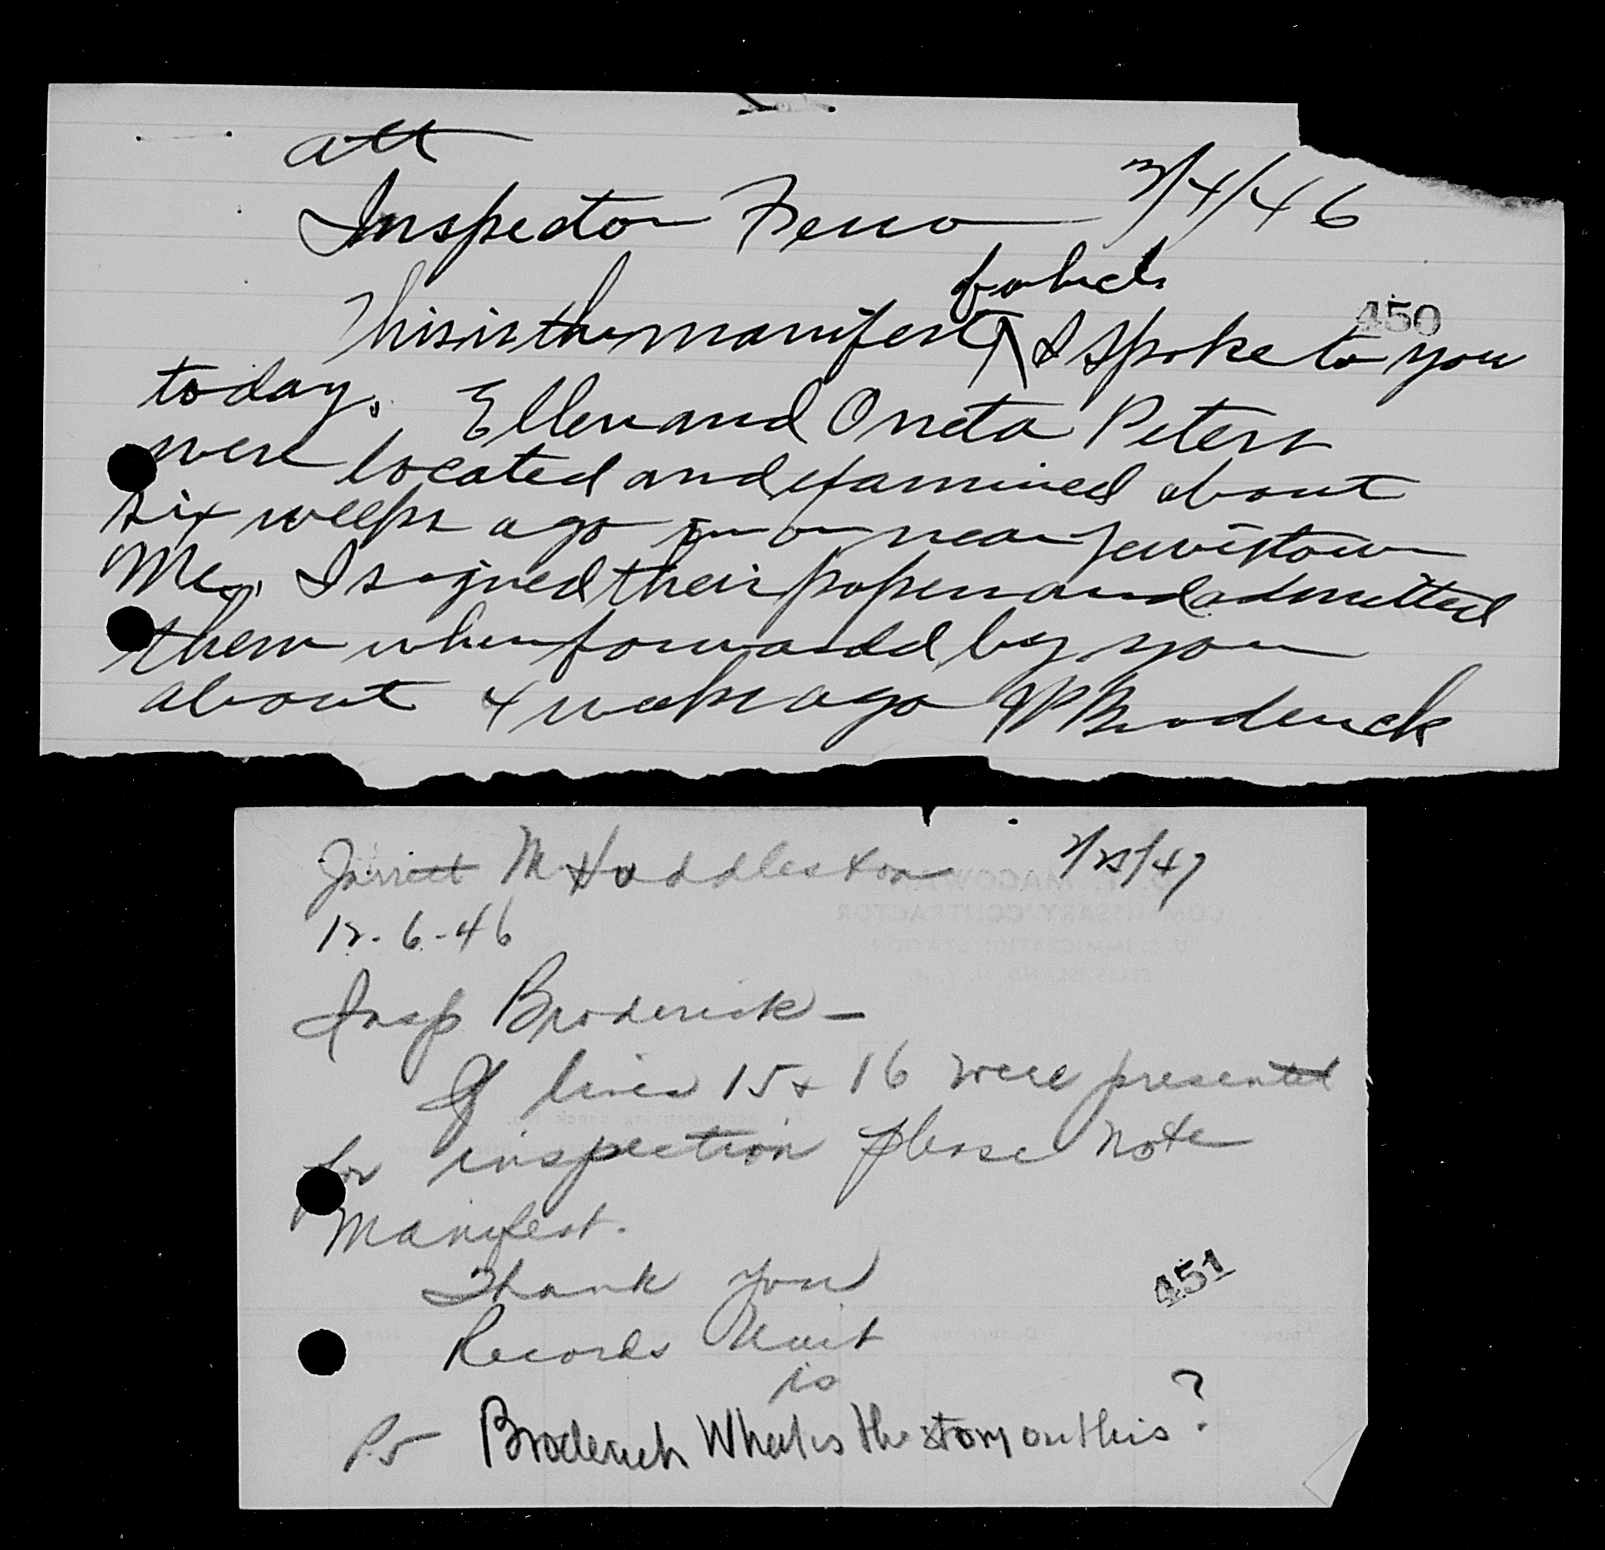 att
Inspector Ferro 3/4/46
of which
This is the manifest I spoke to you
450
today. Ellen and Oneta Peters
were located and examined about
six weeks ago in or near Lewistown
Me. I signed their papers and admitted
them when forwarded by you
about 4 weeks ago JP Broderick
Jarrett M. Huddleston 2/25/47
12-6-46
Insp Broderick -
If lines 15 & 16 were presented
for inspection please note
Manifest.
Thank you
451
Records Unit
is
PS Broderick What is the story on this?